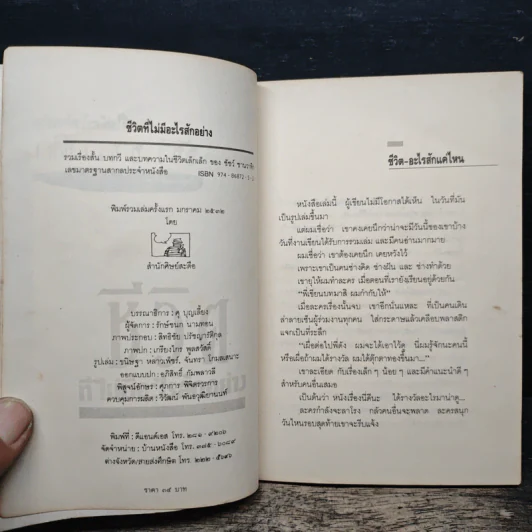 ชีวิตที่ไม่มีอะไรสักอย่าง
รวมเรื่องสั้น บทกวี และบทความในชีวิตเล็กเล็ก ของ ชัชว์
เลขมาตรฐานสากลประจำหนังสือ ISBN 974-86872-
พิมพ์รวมเล่มครั้งแรก มกราคม ๒๕๓๒
โดย
สำนักศิษย์สะดือ
บรรณาธิการ : ศุ บุญเลี้ยง
ผู้จัดการ : รักษ์ชนก นามทอน
ภาพประกอบ : สิทธิชัย ปรัชญารติกุล
ภาพปก : เกรียงไกร พูลสวัสดิ์
รูปเล่ม : ชนิษฐา หล่าวเพ็ชร์, จันทรา โกมลเสนาะ
ออกแบบปก : อภิสิทธิ์ กัมพลาวลี
พิสูจน์อักษร : ศุภการ พิจิตรวรการ
ควบคุมการผลิต : วิวัฒน์ พันธวุฒิยานนท์
พิมพ์ที่ : ดีแอนด์เอส โทร. ๒๘๑-๙๒๐๒
จัดจำหน่าย : บ้านหนังสือ โทร. ๓๗๕-๖๐๘๙
ต่างจังหวัด/สายส่งศึกษิต โทร. ๒๒๒-๕๖๙๖
ราคา ๓๙ บาท
ชีวิต-อะไรสักแค่ไหน
หนังสือเล่มนี้ ผู้เขียนไม่มีโอกาสได้เห็น ในวันที่มัน
เป็นรูปเล่มขึ้นมา
แต่ผมเชื่อว่า เขาคงเคยนึกว่าน่าจะมีวันนี้ของเขาบ้าง
วันที่งานเขียนได้รับการรวมเล่ม และมีคนอ่านมากมาย
ผมเชื่อว่า เขาต้องเคยนึก เคยหวังไว้
เพราะเขาเป็นคนช่างคิด ช่างฝัน และ ช่างทำด้วย
เขายุให้ผมทำละคร เมื่อตอนที่เรายังเรียนอยู่ด้วยกัน
"พี่เขียนบทมาสิ ผมกำกับให้"
เมื่อละครเรื่องนั้นจบ เขาซึกนั้นแหละ ที่เป็นคนเดิน
ล่าลายเซ็นผู้ร่วมงานทุกคน ใส่กระดาษแล้วเคลือบพลาสติก
แจกเป็นที่ระลึก
"เผื่อต่อไปพี่ดัง ผมจะได้เอาไว้คุย นี่ผมรู้จักนะคนนี้
หรือเผื่อถ้าผมได้รางวัล ผมได้ตุ๊กตาทองขึ้นมา..."
เขาละเอียด กับเรื่องเล็ก ๆ น้อย ๆ และมีคำแนะนำดี ๆ
สำหรับคนอื่นเสมอ
เป็นต้นว่า หนังเรื่องนี้ดีนะ ได้รางวัลอะไรมาน่าดู...
ละครกำลังจะลาโรง กลัวคนอื่นจะพลาด ละครสนุก
วันไหนรอบสุดท้ายเขาจะรีบแจ้ง